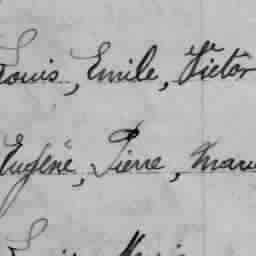 Louis, Emile, Victor
Eugène, Pierre, Marie